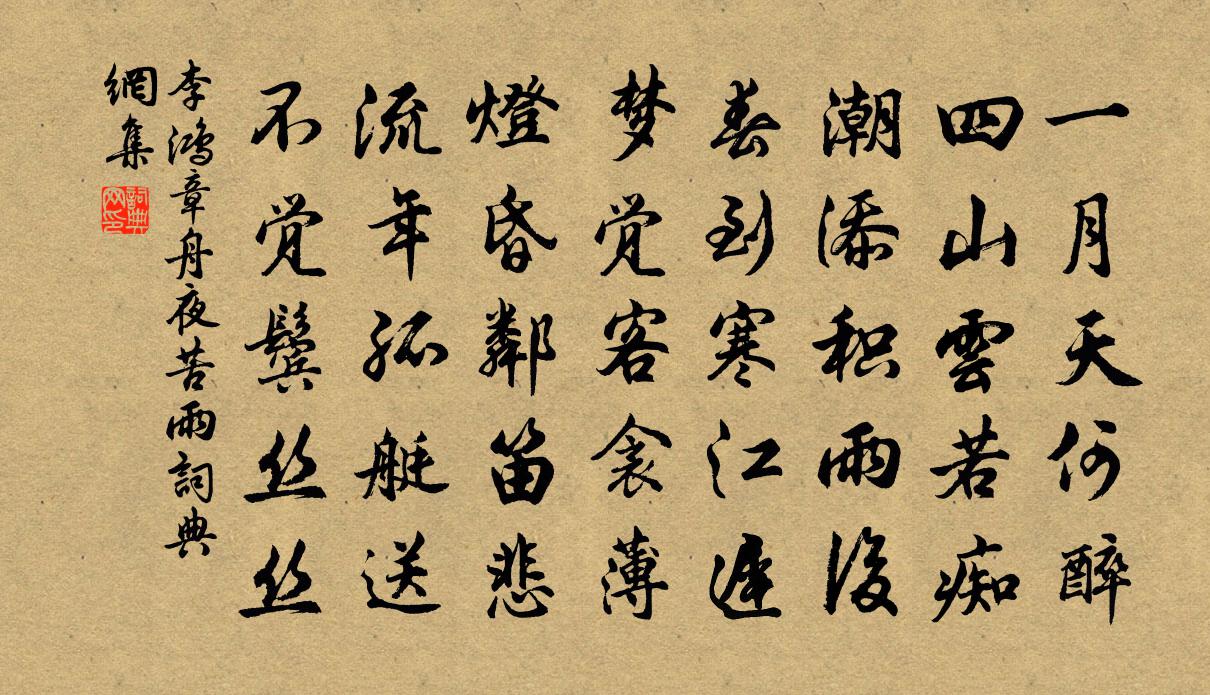 一月天何醉
四山雲若痴
潮添积雨後
春到寒江遲
梦觉客衾薄
燈昏鄰笛悲
流年孤艇送
不觉鬓丝丝
李鴻章舟夜苦雨詞典
網集
詞典
网印